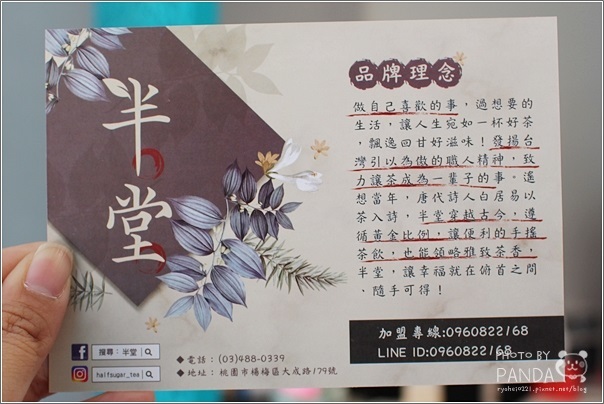 半堂
品牌理念
做自己喜歡的事，過想要的
生活，讓人生宛如一杯好茶
，飄逸回甘好滋味！發揚台
灣引以為傲的職人精神，致
力讓茶成為一輩子的事。遙
想當年，唐代詩人白居易以
茶入詩，半堂穿越古今，遵
循黃金比例，讓便利的手搖
茶飲，也能領略雅致茶香，
半堂，讓幸福就在俯首之間
，隨手可得！
搜尋：半堂
halfsugar_tea
◆電話：(03)488-0339
◆地址：桃園市楊梅區大成路179號
加盟專線:0960822168
LINE ID:0960822168
PHOTO BY
PANDA
ryohei0221.pixnet.net/blog